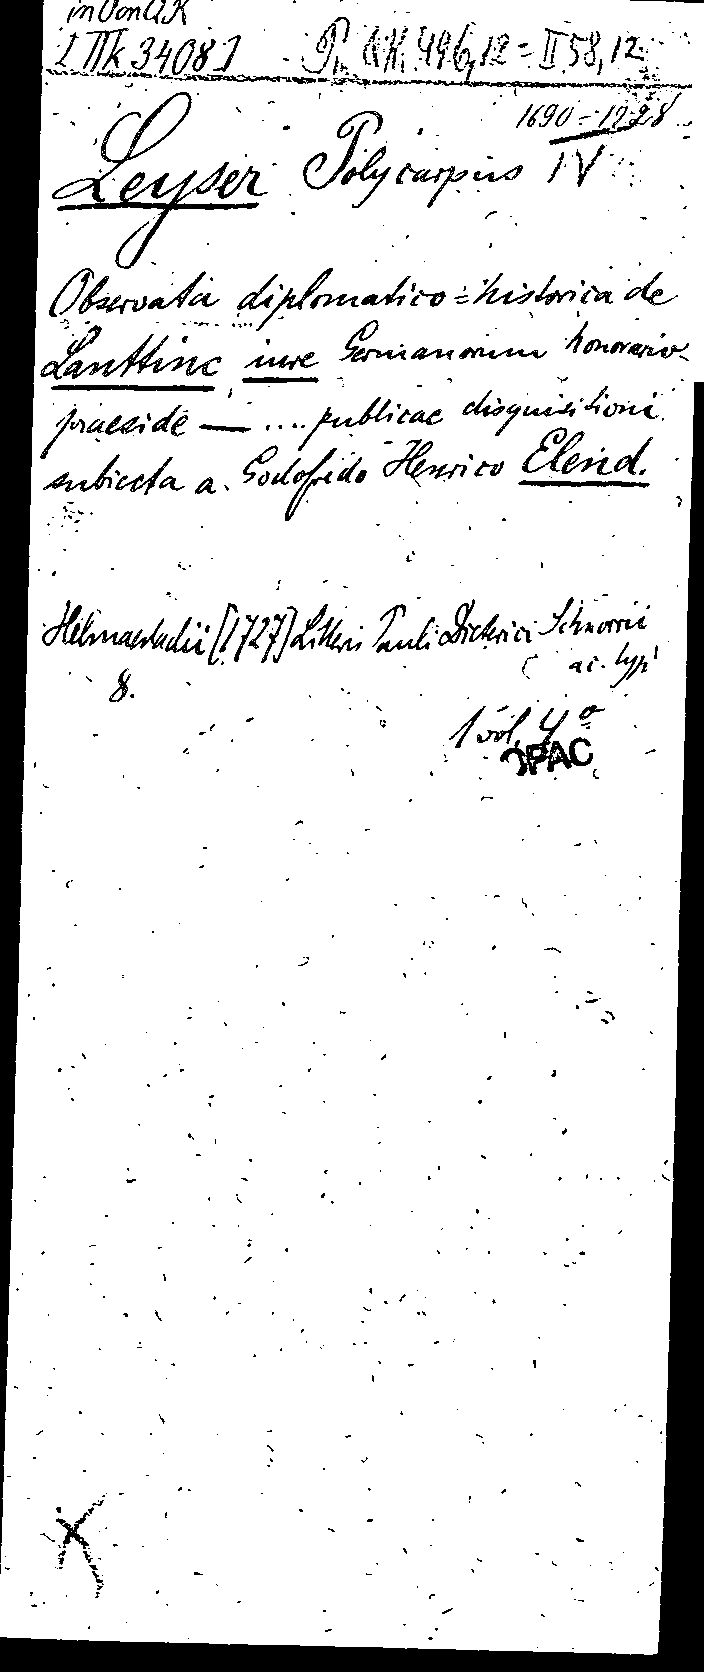 in Von Q.K
I ΠK 34081 Pr. Q.K. 496,12 = II 58,12
1690 - 1728
Leyser Polycarpus IV
Observata diplomatico=historica de
Lanttinc iure Germanorum honorario
praeside — .... publicae disquisitioni
subiecta a. Godofrido Henrico Elend.
Helmaestadii [1727] Litteris Pauli Dieterici Schnorrii
ac. typ.
8.
1 vol. 4º
OPAC